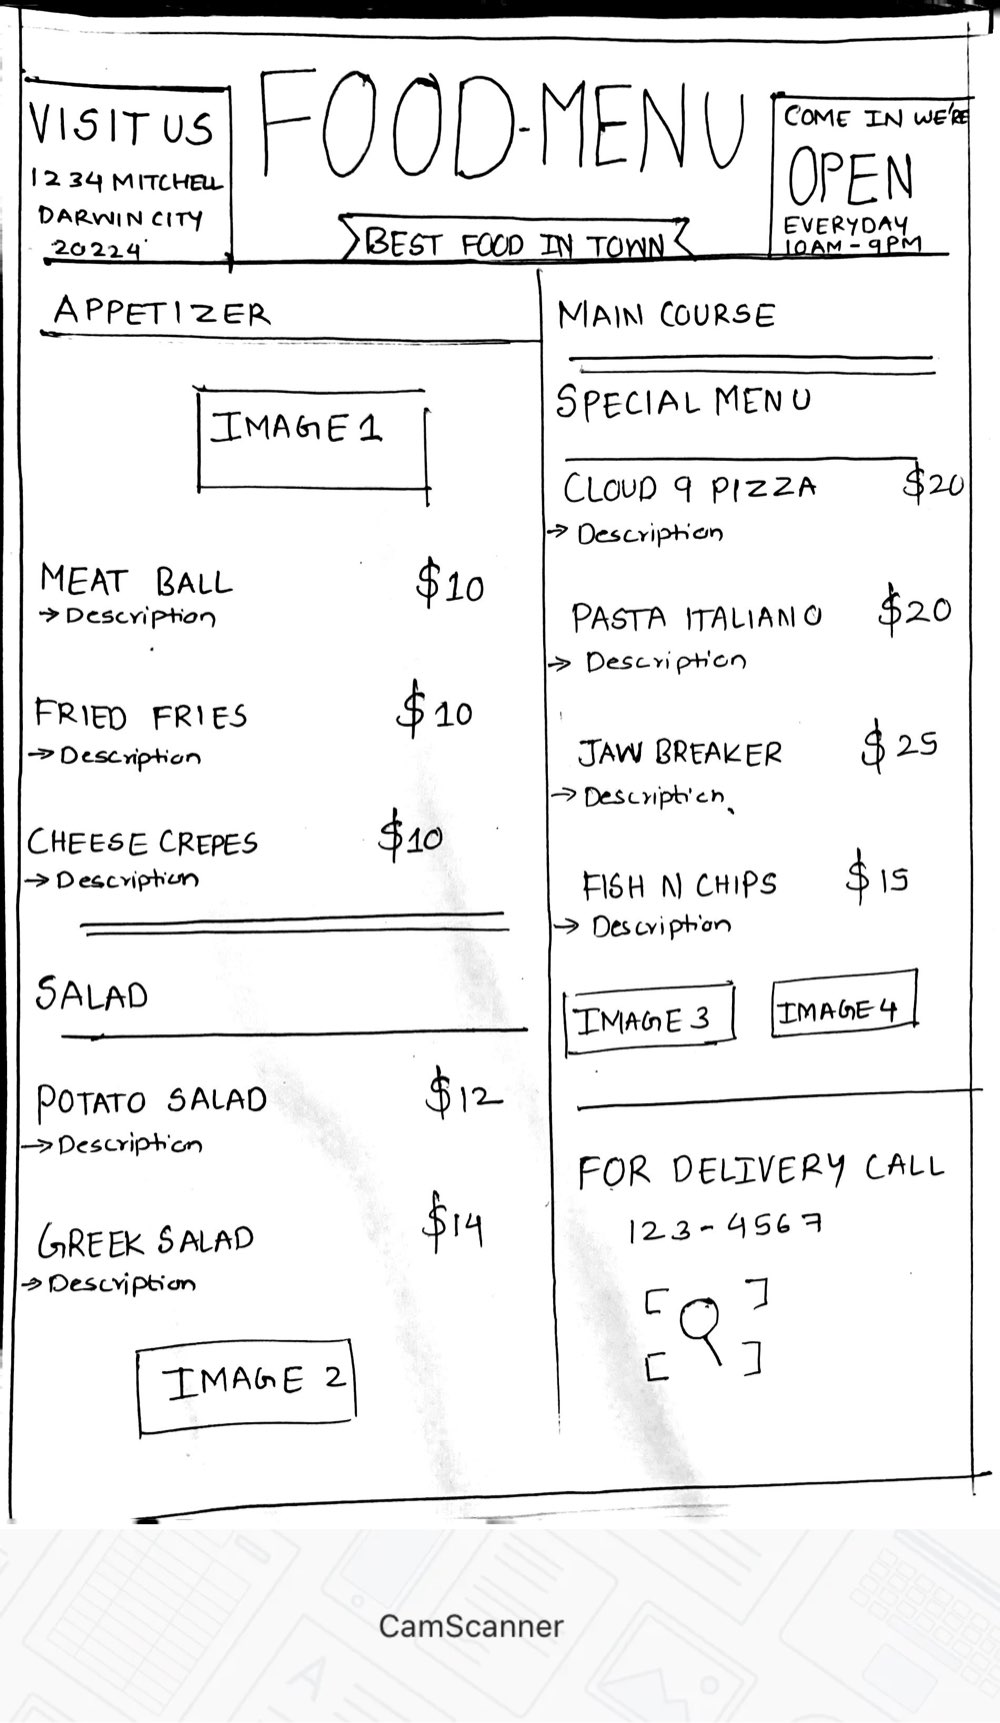 VISIT US
1234 MITCHELL
DARWIN CITY
20224
FOOD-MENU
BEST FOOD IN TOWN
COME IN WE'RE
OPEN
EVERYDAY
10AM - 9PM
APPETIZER
IMAGE 1
MEAT BALL $10
→ Description
FRIED FRIES $10
→ Description
CHEESE CREPES $10
→ Description
SALAD
POTATO SALAD $12
→ Description
GREEK SALAD $14
→ Description
IMAGE 2
MAIN COURSE
SPECIAL MENU
CLOUD 9 PIZZA $20
→ Description
PASTA ITALIANO $20
→ Description
JAW BREAKER $25
→ Description.
FISH N CHIPS $15
→ Description
IMAGE 3 IMAGE 4
FOR DELIVERY CALL
123-4567
CamScanner